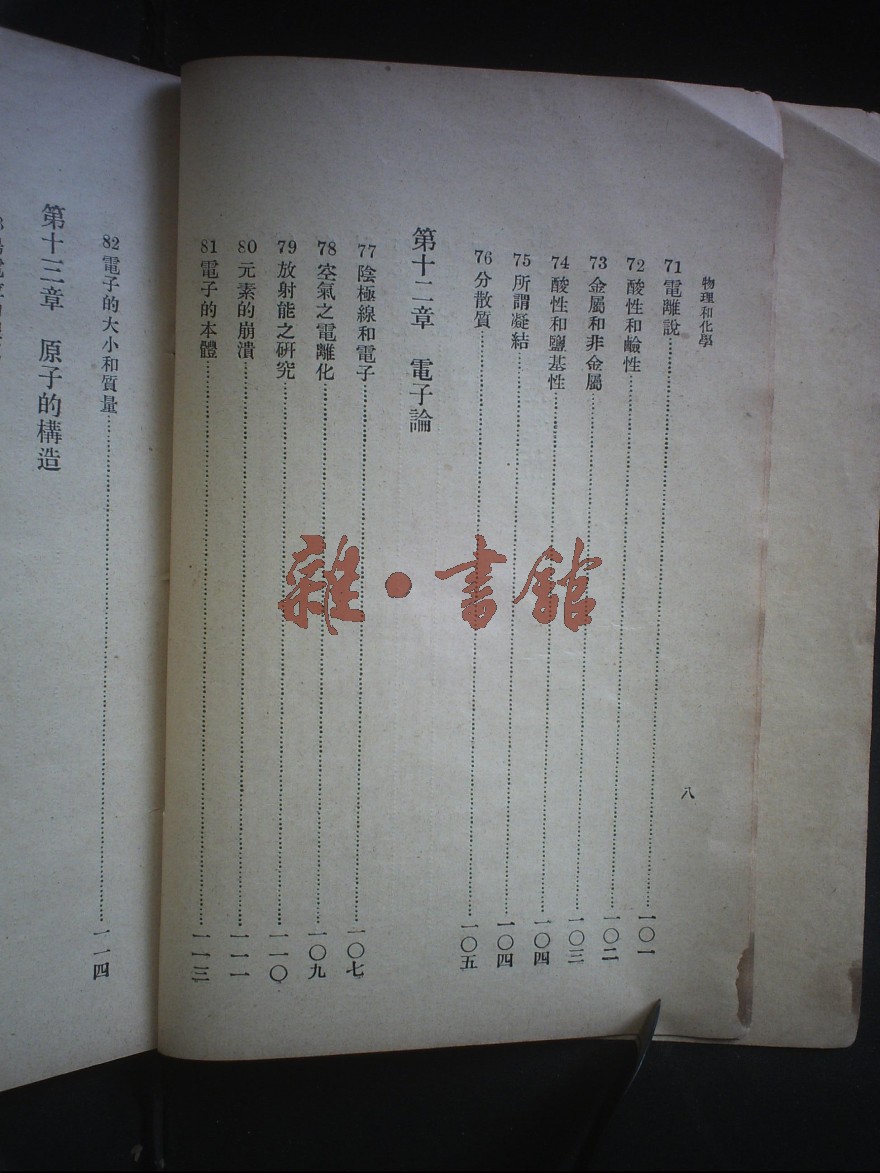 物理和化學
八
71 電離說……一〇一
72 酸性和鹼性……一〇二
73 金屬和非金屬……一〇三
74 酸性和鹽基性……一〇四
75 所謂凝結……一〇四
76 分散質……一〇五
第十二章　電子論
77 陰極線和電子……一〇七
78 空氣之電離化……一〇九
79 放射能之硏究……一一〇
80 元素的崩潰……一一一
81 電子的本體……一一三
82 電子的大小和質量……一一四
第十三章　原子的構造
雜·書館